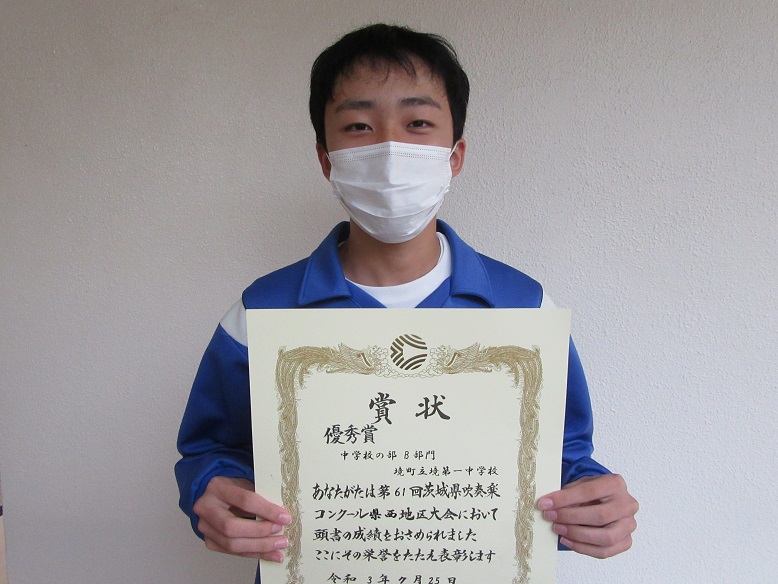 賞状
優秀賞
中学校の部 B部門
境町立境第一中学校
あなたがたは第61回茨城県吹奏楽
コンクール県西地区大会において
頭書の成績をおさめられました
ここにその栄誉をたたえ表彰します
令和 3年 7月 25日